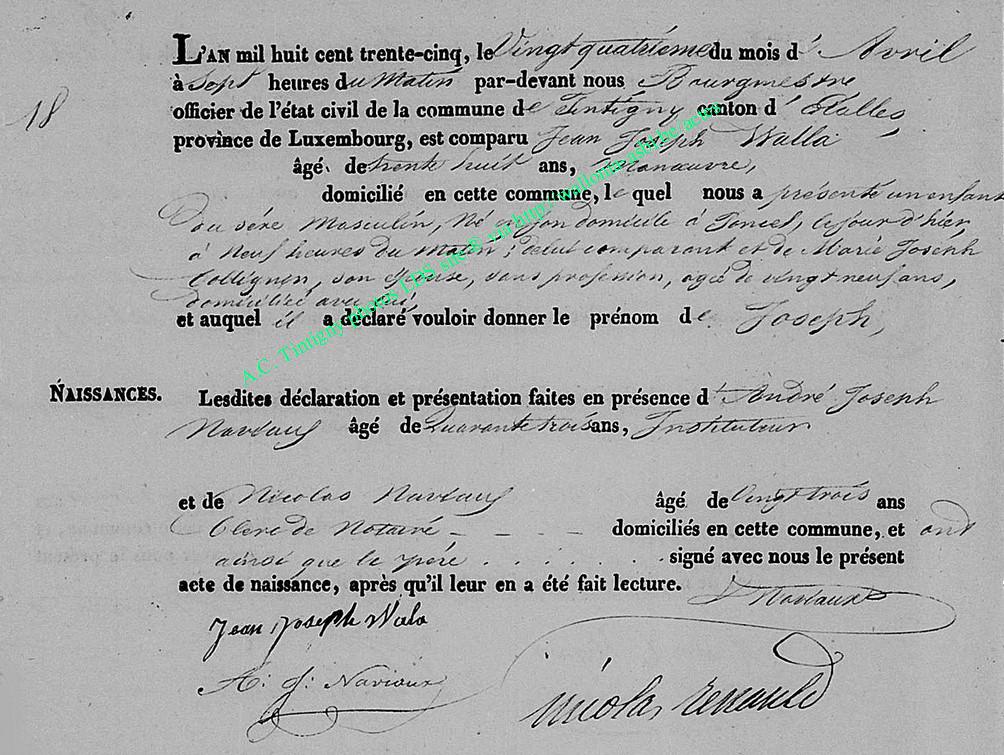 18
L'AN mil huit cent trente-cinq, le Vingt quatrième du mois d' Avril
à Sept heures du Matin par-devant nous Bourgmestre
officier de l'état civil de la commune de Tintigny canton d' Etalles
province de Luxembourg, est comparu Jean Joseph Walla
âgé de trente huit ans, Manœuvre,
domicilié en cette commune, le quel nous a présenté un enfant
du sexe Masculin, Né à son domicile à Poncel, le jour d'hier,
à Neuf heures du Matin, de lui comparant et de Marie Joseph
Collignon, son Epouse, sans profession, agée de vingt neuf ans,
domiciliée avec lui,
et auquel il a déclaré vouloir donner le prénom de Joseph,
NAISSANCES.
Lesdites déclaration et présentation faites en présence d' André Joseph
Navéaux âgé de Quarante trois ans, Instituteur
et de Nicolas Navéaux âgé de Vingt trois ans
Clerc de Notaire - - - - domiciliés en cette commune, et ont
ainsi que le père . . . . . . . signé avec nous le présent
acte de naissance, après qu'il leur en a été fait lecture.
Navaux
Jean Joseph Wala
A: J: Naviaux
nicolas
A.C. Tintigny photos LDS site® via http://wallonia.asbl.be/actes